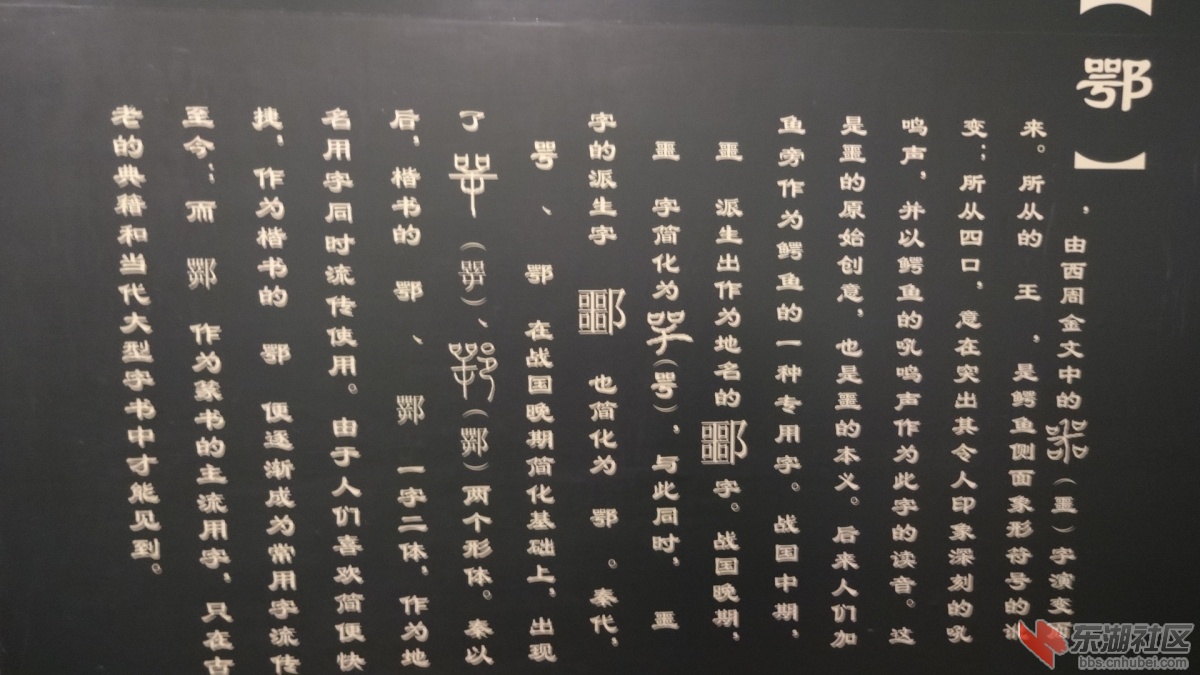 【鄂】
，由西周金文中的（噩）字演变而
来。所从的 王 ，是鳄鱼侧面象形符号的演
变；所从四口，意在突出其令人印象深刻的吼
鸣声，并以鳄鱼的吼鸣声作为此字的读音。这
是噩的原始创意，也是噩的本义。后来人们加
鱼旁作为鳄鱼的一种专用字。战国中期，
噩 派生出作为地名的 字。战国晚期，
噩 字简化为（咢），与此同时， 噩
字的派生字 也简化为 鄂 。秦代，
咢 、 鄂 在战国晚期简化基础上，出现
了（）、（）两个形体。秦以
后，楷书的 鄂 、 一字二体，作为地
名用字同时流传使用。由于人们喜欢简便快
捷，作为楷书的 鄂 便逐渐成为常用字流传
至今；而 作为篆书的主流用字，只在古
老的典籍和当代大型字书中才能见到。
东湖社区
bbs.cnhubei.com